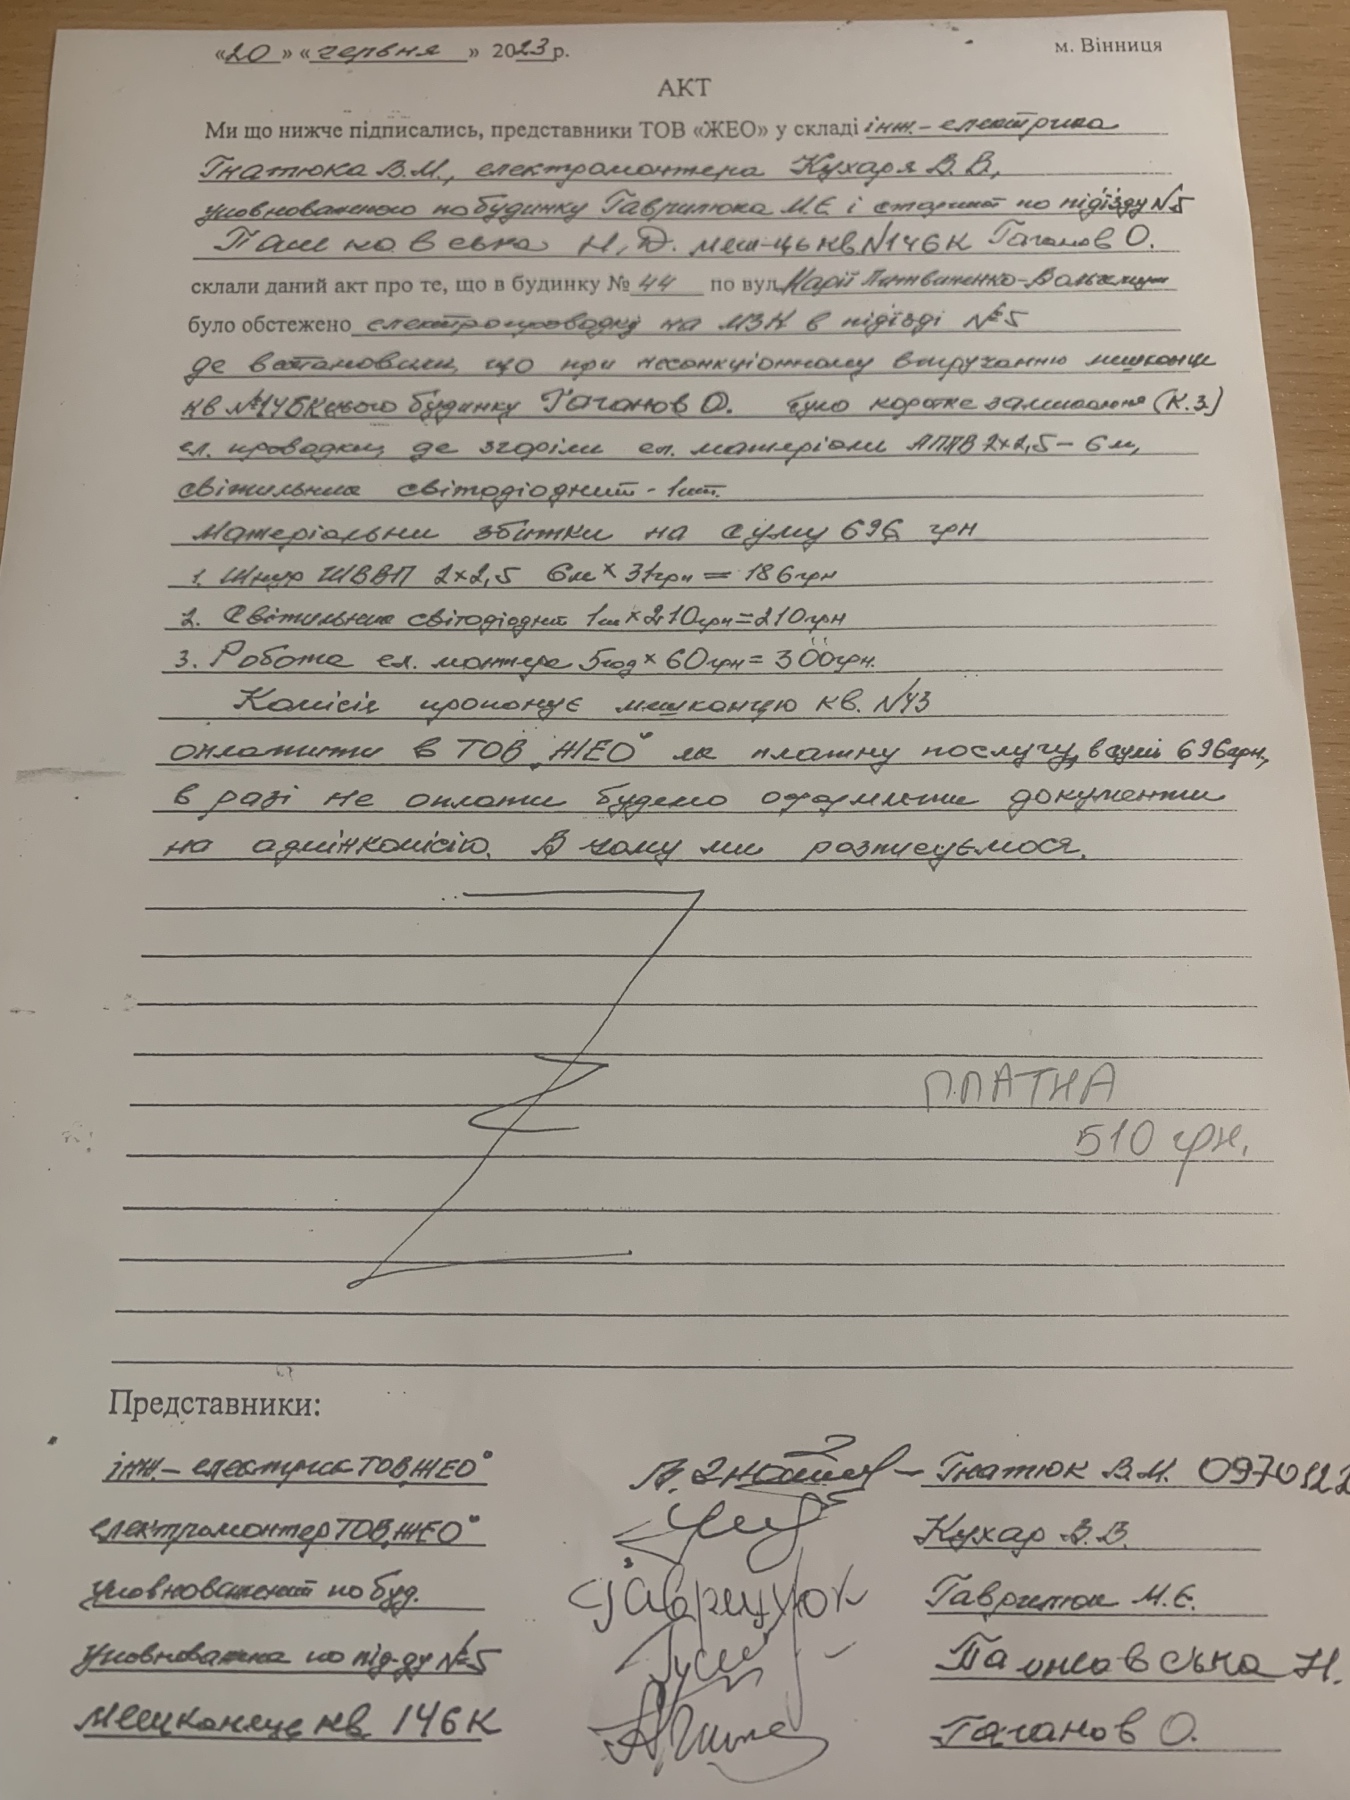 «20» «червня» 2023 р. м. Вінниця
АКТ
Ми що нижче підписались, представники ТОВ «ЖЕО» у складі інж.-електрика
Гнатюка В.М., електромонтера Кухаря В.В,
уповноваженого по будинку Гаврилюка М.Є. і старшої по під'їзду №5
Пашковська Н.Д. меш-ць кв. №146К Гаганов О.
склали даний акт про те, що в будинку № 44 по вул. Марії Литвиненко-Вольгемут
було обстежено електропроводку на МЗК в під'їзді №5
де встановили, що при несанкціонному втручанню мешканця
кв №146К цього будинку Гаганов О. було коротке замикання (К.З.)
ел. проводки, де згоріли ел. матеріали АППВ 2х2,5 - 6м,
світильник світодіодний - 1шт.
Матеріальни збитки на суму 696 грн
1. Шнур ШВВП 2х2,5 6м х 31грн = 186грн
2. Світильник світодіодний 1шт х 210грн = 210грн
3. Робота ел. монтера 5год х 60грн = 300грн.
Комісія пропонує мешканцю кв. №43
оплатити в ТОВ „ЖЕО" як платну послугу, в сумі 696грн,
в разі не оплати будемо оформляти документи
на адмінкомісію. В чому ми розписуємося.
ПЛАТНА
510 грн.
Представники:
інж.-електрик ТОВ „ЖЕО" Гнатюк В.М. 0970122
електромонтер ТОВ „ЖЕО" Кухар В.В.
уповноважений по буд. Гаврилюк Гаврилюк М.Є.
Уповноважена по під-ду №5 Пашковська Н.
Мешканець кв. 146К Гаганов О.